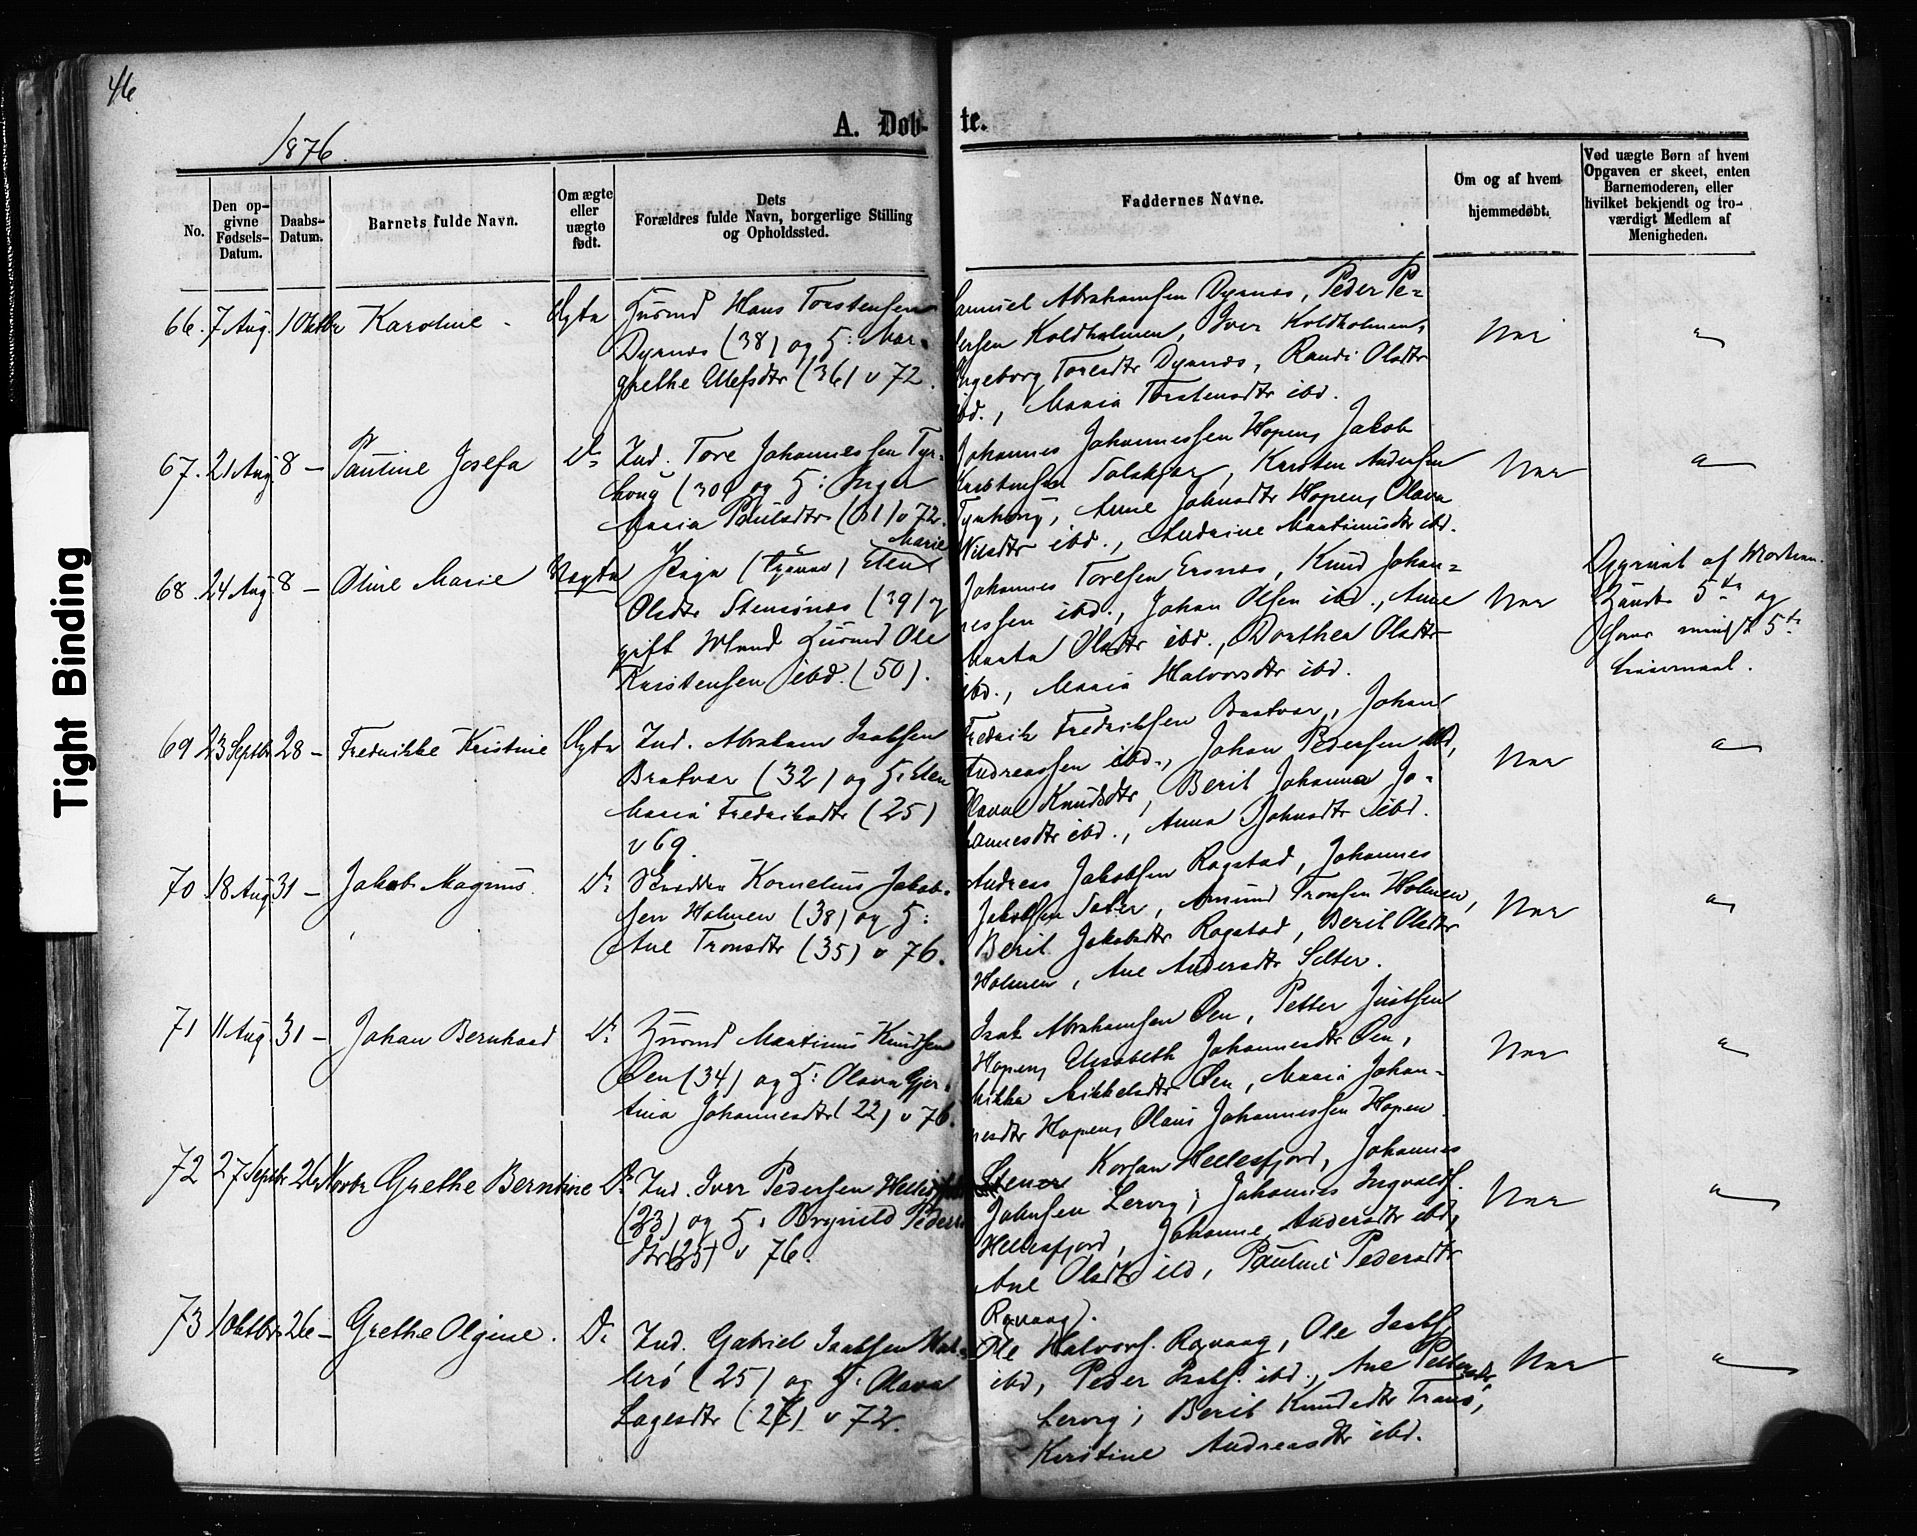 46
1876.
A. Døb- te.
No.
Den opgivne Fødsels-Datum.
Daabs-Datum.
Barnets fulde Navn.
Om ægte eller uægte født.
Dets Forældres fulde Navn, borgerlige Stilling og Opholdssted.
Faddernes Navne.
Om og af hvem hjemmedøbt.
Ved uægte Børn af hvem Opgaven er skeet, enten Barnemoderen, eller hvilket bekjendt og troværdigt Medlem af Menigheden.
66. 7 Aug. 1 Oktbr Karoline Ægte Husmd Hans Torstensen
Dyrnes (38) og H: Mar-
grethe Ellefsdtr (36) v 72.
Samuel Abrahamsen Dyrnes, Peder Pe-
dersen Koldholmen, Iver Koldholmen,
Ingeborg Toresdtr Dyrnes, Randi Olsdtr
ibd., Maria Torstensdtr ibd.
Nei "
67. 21 Aug 8 – Pauline Josefa Do Ind. Tore Johannessen Tyr-
houg (30) og H: Inger
Maria Paulsdtr (31) v 72.
Johannes Johannessen Hopen, Jakob
Kristensen , Kristen Andersen
Tyrhoug, Anne Johnsdtr Hopen, Olava
Nilsdtr ibd., Andrine Martinusdtr ibd.
Nei "
68. 24 Aug 8 – Oline Marie Uægte Pige (tjener) Elen Marie
Olsdtr Stensønes (39) og
gift Mand Husmd Ole
Kristensen ibd. (50).
Johannes Toresen Ersnes, Knud Johan-
nessen ibd., Johan Olsen ibd., Ane
Marta Olsdtr ibd., Dorthea Olsdtr
ibd., Maria Halvorsdtr ibd.
Nei
Opgivet af Moderen.
Hendes 5te og
hans mindst 5te
Leiermaal.
69 23 Septbr 28 – Fredrikke Kristine Ægte Ind. Abraham Isaksen
Bratvær (32) og H: Elen
Maria Fredriksdtr (25)
v 69.
Fredrik Fredriksen Bratvær, Johan
Andreassen ibd., Johan Pedersen ibd,
Olava Knudsdtr, Berit Johanna Jo-
hannesdtr ibd., Anna Johnsdtr ibd.
Nei "
70 18 Aug 31 – Jakob Magnus. Do Skrædder Kornelius Jakob-
sen Holmen (38) og H:
Ane Tronsdtr (35) v 76.
Andreas Jakobsen Rogstad, Johannes
Jakobsen Sæter, Amund Tronsen Holmen,
Berit Jakobsdtr Rogstad, Berit Olsdtr
Holmen, Ane Andersdtr Selter.
Nei "
71 11 Aug 31 – Johan Bernhard Do Husmd Martinus Knudsen
Øen (34) og H: Olava Gjer-
tina Johannesdtr (22) v 76.
Isak Abrahamsen Øen, Petter Justsen
Hopen, Elisabeth Johannesdtr Øen,
Mikka Mikkelsdtr Øen, Maria Johan-
nesdtr Hopen, Olaus Johannessen Hopen
Nei "
72 27 Septbr 26 Novbr Grethe Berntine Do Ind. Iver Pedersen Hellesfjord
(23) og H: Brynild Peders-
dtr (25) v 76.
Stener Korsan Hellesfjord, Johannes
Johnsen Lervig, Johannes Ingvalds.
Hellesfjord, Johanne Andersdtr ibd,
Ane Olsdtr ibd, Pauline Pedersdtr
Rovaag).
Nei "
73 1 Oktbr 26 – Grethe Olgine. Do Ind. Gabriel Isaksen
(25) og H: Olava
Lagesdtr (26) v 72.
Ole Halvors. Rovaag, Ole Isaks.
ibd, Peder Isaks. ibd., Ane Peders-
dtr Lervig, Berit Knudsdtr Tranø,
Kirstine Andreasdtr ibd.
Nei "
Tight Binding